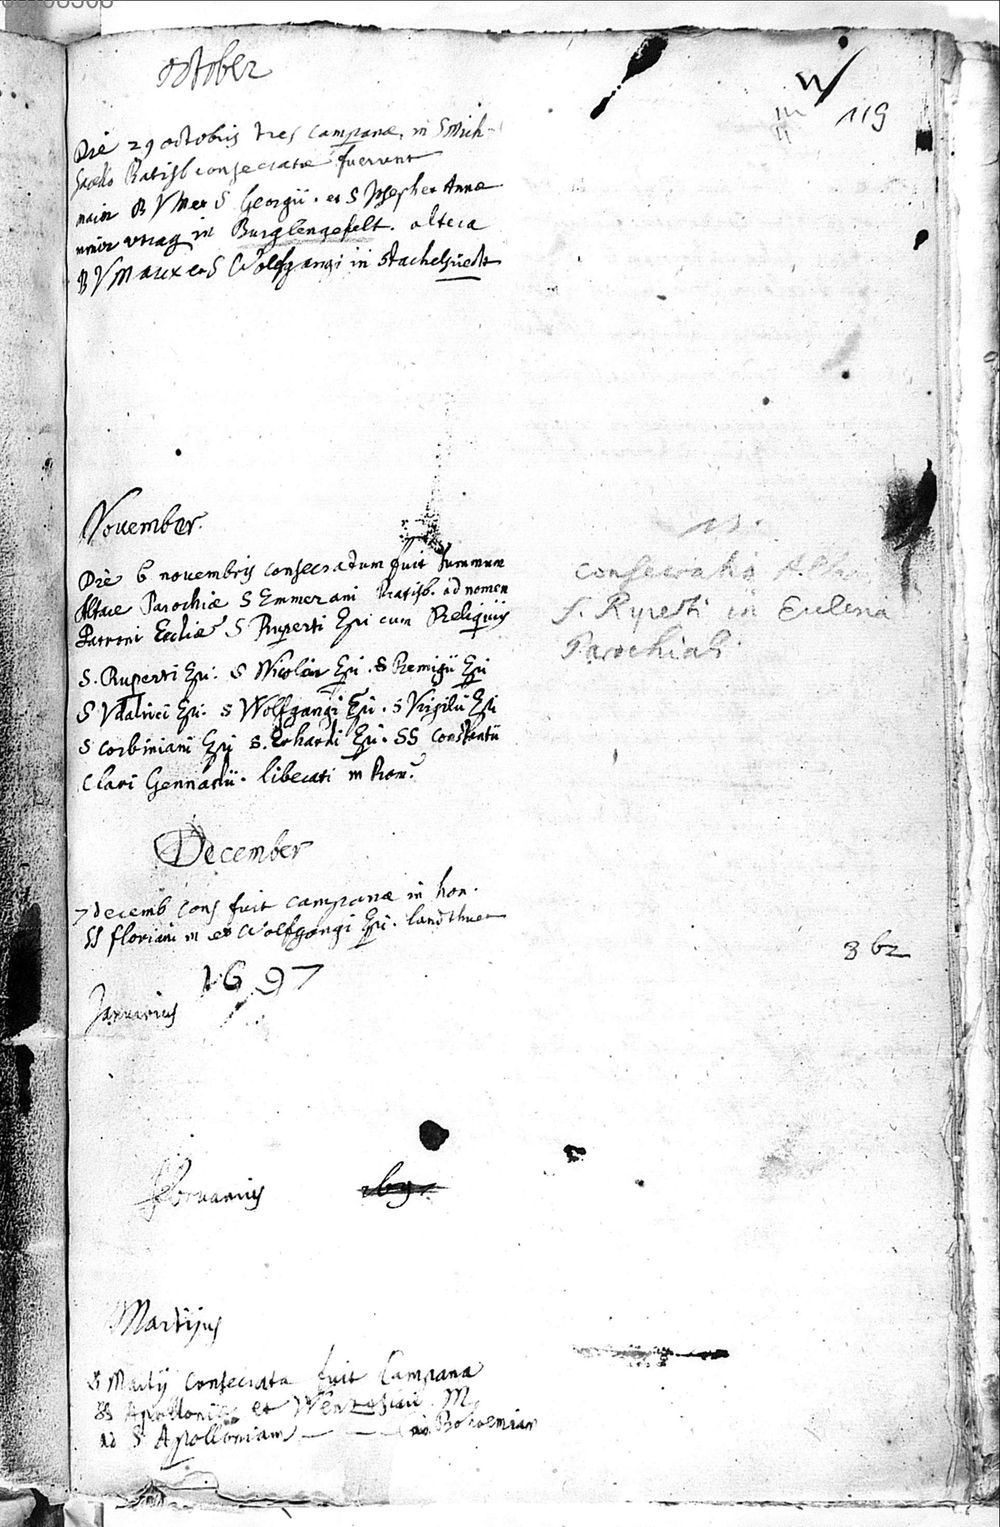 october
119
Die 29 octobris tres campanæ, in S Mich-
Sacello Ratisb consecratæ fuerunt
maior B V M et S Georgii. et S Josephet Annæ
minor utraq in Burglengefelt. altera
B V Mariæ et S Wolfgangi in Stachel
November.
Die 6 novembris consecratum fuit summum
Altare Parochiæ S Emmerani Ratisb. ad nomen
Patroni Eccliæ S Ruperti Epi cum Reliquiis
S. Ruperti Epi: S Nicolai Epi. S Remigii Epi
S Vdalrici Epi. S Wolfgangi Epi. S Virgilii Epi
S Corbiniani Epi S. Erhardi Epi. SS Constantii
Clari Gennarii. liberati m hon.
consecratio Alta
S. Ruperti in
Parochiali
December
7 decemb cons fuit campanæ in hon.
SS floriani m et Wolfgangi Epi. landthuet
362
1697
Januarius
Februarius
Martijus
8 Martij consecrata fuit Campana
SS Apolloniæ et Wenzeslai M.
ad S Apolloniam — — in Bohoemiam